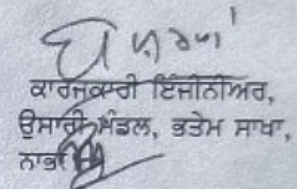 ਕਾਰਜਕਾਰੀ ਇੰਜੀਨੀਅਰ,
ਉਸਾਰੀ ਮੰਡਲ, ਭਤੇਮ ਸਾਖਾ,
ਨਾਭਾ